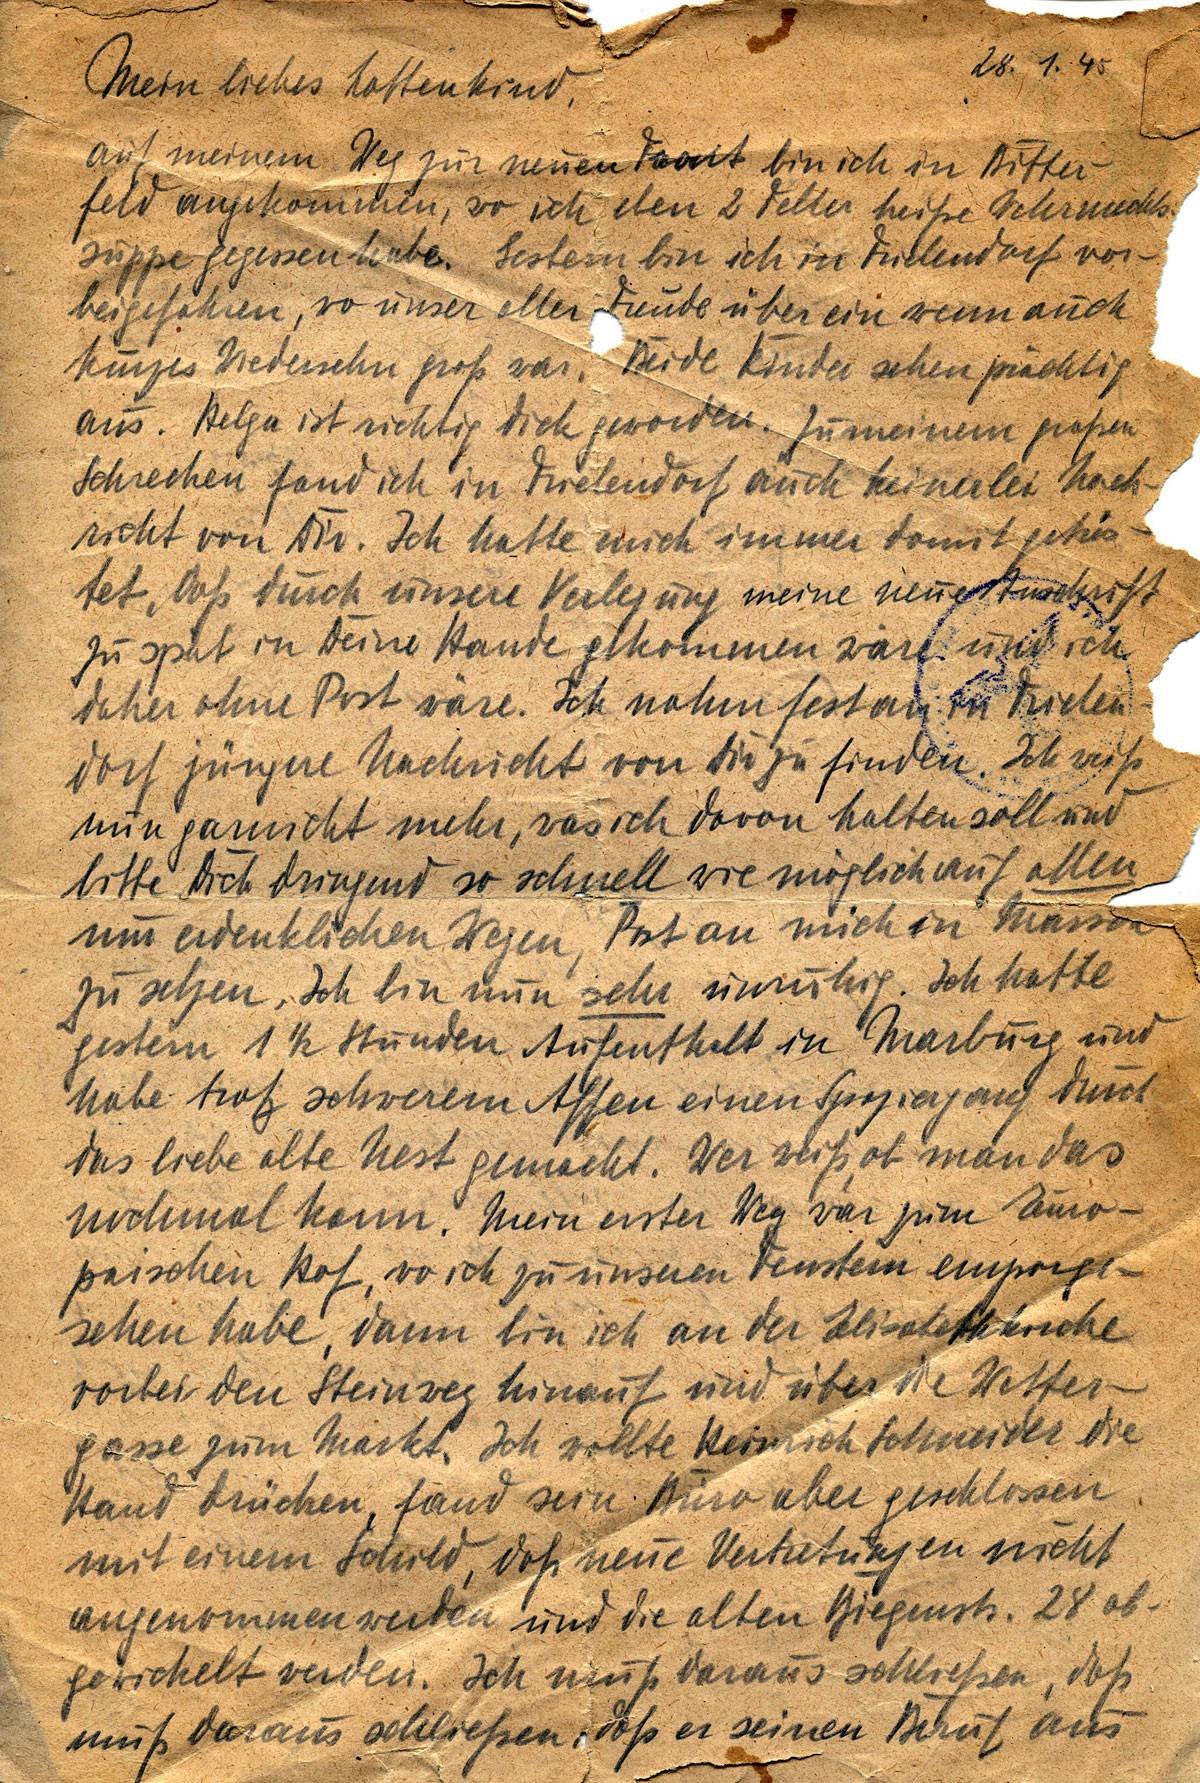 28. 1. 45
Mein liebes Lottenkind,
auf meinem Weg zur neuen Front bin ich in Bitter-
feld angekommen, wo ich eben 2 Teller heiße Wehrmachts-
suppe gegessen habe. Gestern bin ich in Frielendorf vor-
beigefahren, wo unser aller Freude über ein wenn auch
kurzes Wiedersehn groß war. Beide Kinder sehen prächtig
aus. Helga ist richtig dick geworden. Zu meinem großen
Schrecken fand ich in Frielendorf auch keinerlei Nach-
richt von Dir. Ich hatte mich immer damit getrös-
tet, daß durch unsere Verlegung meine neue Anschrift
zu spät in Deine Hände gekommen wäre und ich
daher ohne Post wäre. Ich nahm fest an in Frielen-
dorf jüngere Nachricht von Dir zu finden. Ich weiß
nun garnicht mehr, was ich davon halten soll und
bitte Dich dringend so schnell wie möglich auf allen
nur erdenklichen Wegen, Post an mich in Marsch
zu setzen. Ich bin nun sehr unruhig. Ich hatte
gestern 1 ½ Stunden Aufenthalt in Marburg und
habe trotz schwerem Affen einen Spaziergang durch
das liebe alte Nest gemacht. Wer weiß, ob man das
nochmal kann. Mein erster Weg war zum Euro-
päischen Hof, wo ich zu unseren Fenstern emporge-
sehen habe, dann bin ich an der Elisabethkirche
vorbei den Steinweg hinauf und über die Wetter-
gasse zum Markt. Ich wollte Heinrich Schneider die
Hand drücken, fand sein Büro aber geschlossen
mit einem Schild, daß neue Vertretungen nicht
angenommen werden und die alten Biegenstr. 28 ab-
gewickelt werden. Ich muß daraus schließen, daß
muß daraus schließen, daß er seinen Beruf aus